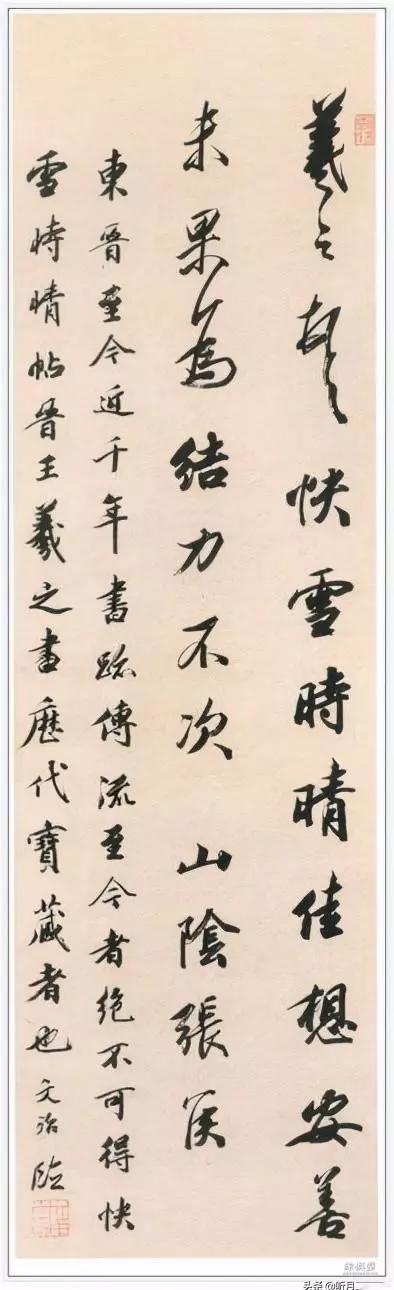 羲之頓首快雪時晴佳想安善
未果為結力不次 山陰張侯
東晉至今近千年書跡傳流至今者絕不可得快
雪時晴帖晉王羲之書歷代寶藏者也 文治臨
头条@听月